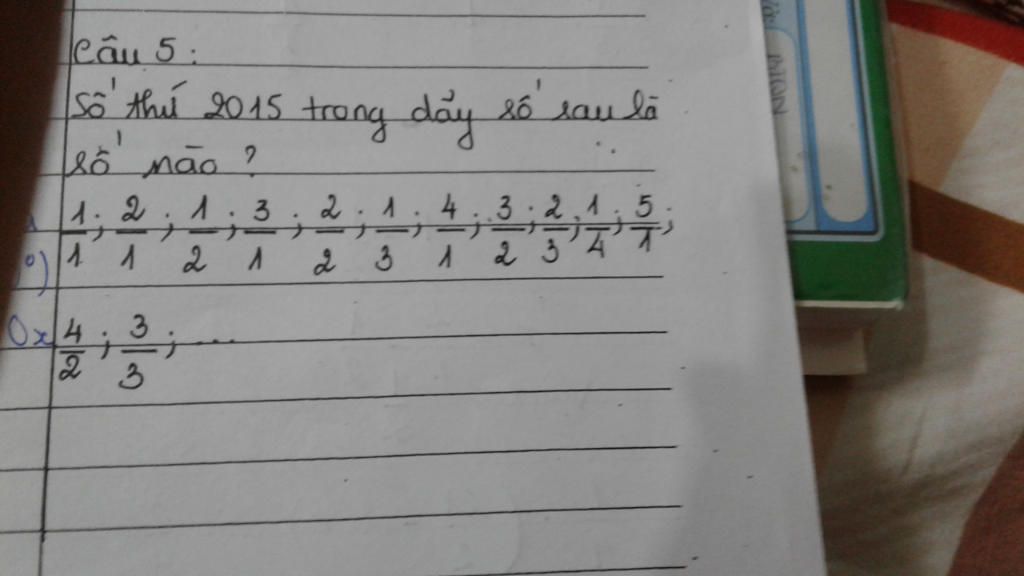 Câu 5:
Số thứ 2015 trong dẫy số sau là
số nào?
1/1; 2/1; 1/2; 3/1; 2/2; 1/3; 4/1; 3/2; 2/3; 1/4; 5/1;
4/2; 3/3; ...